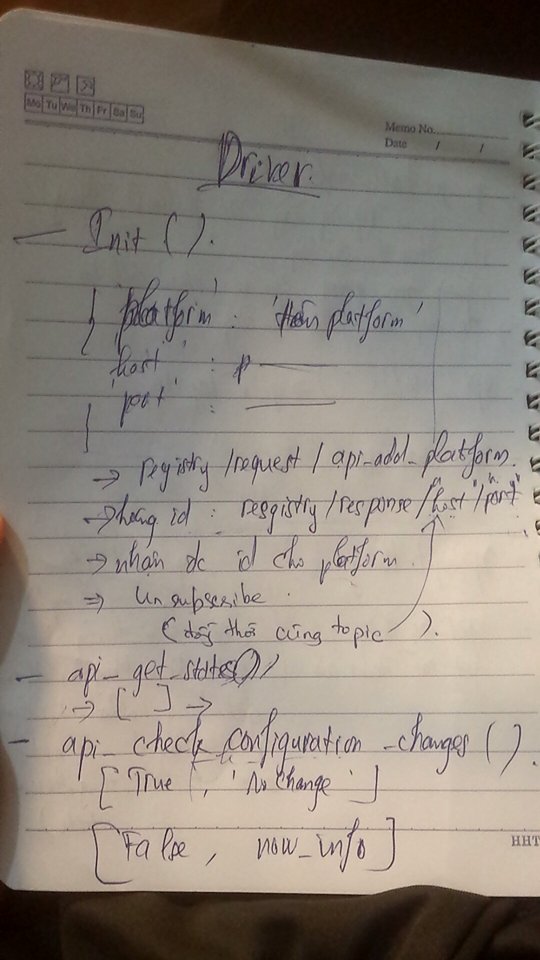 Mo Tu We Th Fr Sa Su
Memo No.
Date / /
Driver.
- Init ().
{ 'platform' : 'tên platform'
'host' :
'port' :
}
→ registry / request / api_add_platform.
→ id : resgistry / response / "host" / "port"
→ nhận đc id cho platform.
⇒ Unsubscribe.
(đồng thời cùng topic ).
- api_get_states()
→ [ ] →
- api_check_configuration_changes ().
[ True , 'No Change ' ]
[ False , new_info ]
HHT